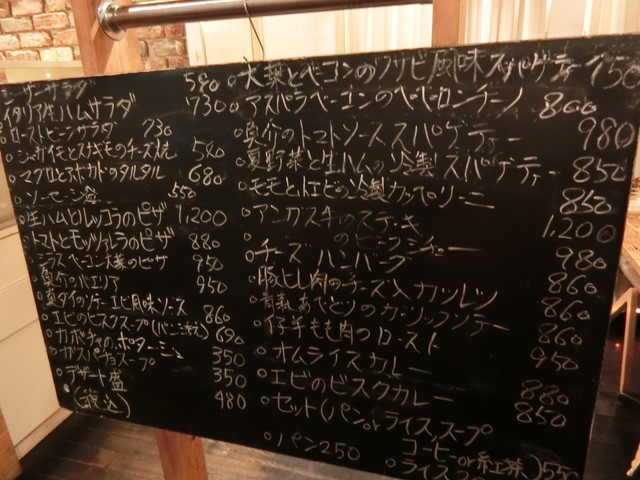 シーザーサラダ 580
イタリア生ハムサラダ 730
ローストビーフサラダ 730
ジャガイモとスナギモのチーズ焼 580
マグロとアボカドのタルタル 680
ソーセージ盛 550
生ハムとルッコラのピザ 1,200
トマトとモッツァレラのピザ 880
シラスベーコン大葉のピザ 950
魚介のパエリア 950
真ダイのソテーエビ風味ソース 860
エビのビスクスープ(パン添え) 690
カボチャのポタージュ 350
ガスパチョスープ 350
デザート盛 480
(税込)
大葉とベーコンのワサビ風味スパゲティー 750
アスパラベーコンのペペロンチーノ 800
魚介のトマトソーススパゲティー 980
夏野菜と生ハムの冷製スパゲティー 850
モモと小エビの冷製カッペリーニ 850
アンガス牛のステーキ 1,200
のビーフシチュー
チーズハンバーグ 980
豚ヒレ肉のチーズ入カツレツ 860
骨付あべどりのガーリックソテー 860
仔羊もも肉のロースト 860
オムライスカレー 950
エビのビスクカレー 880
セット(パンorライス,スープ 850
コーヒーor紅茶) 550
パン250
ライス